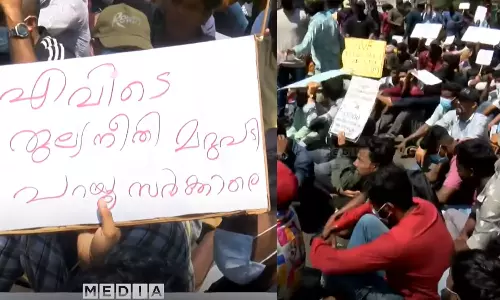 എവിടെ
തുല്യനീതി മറുപടി
പറയൂ സർക്കാരെ
MEDIA